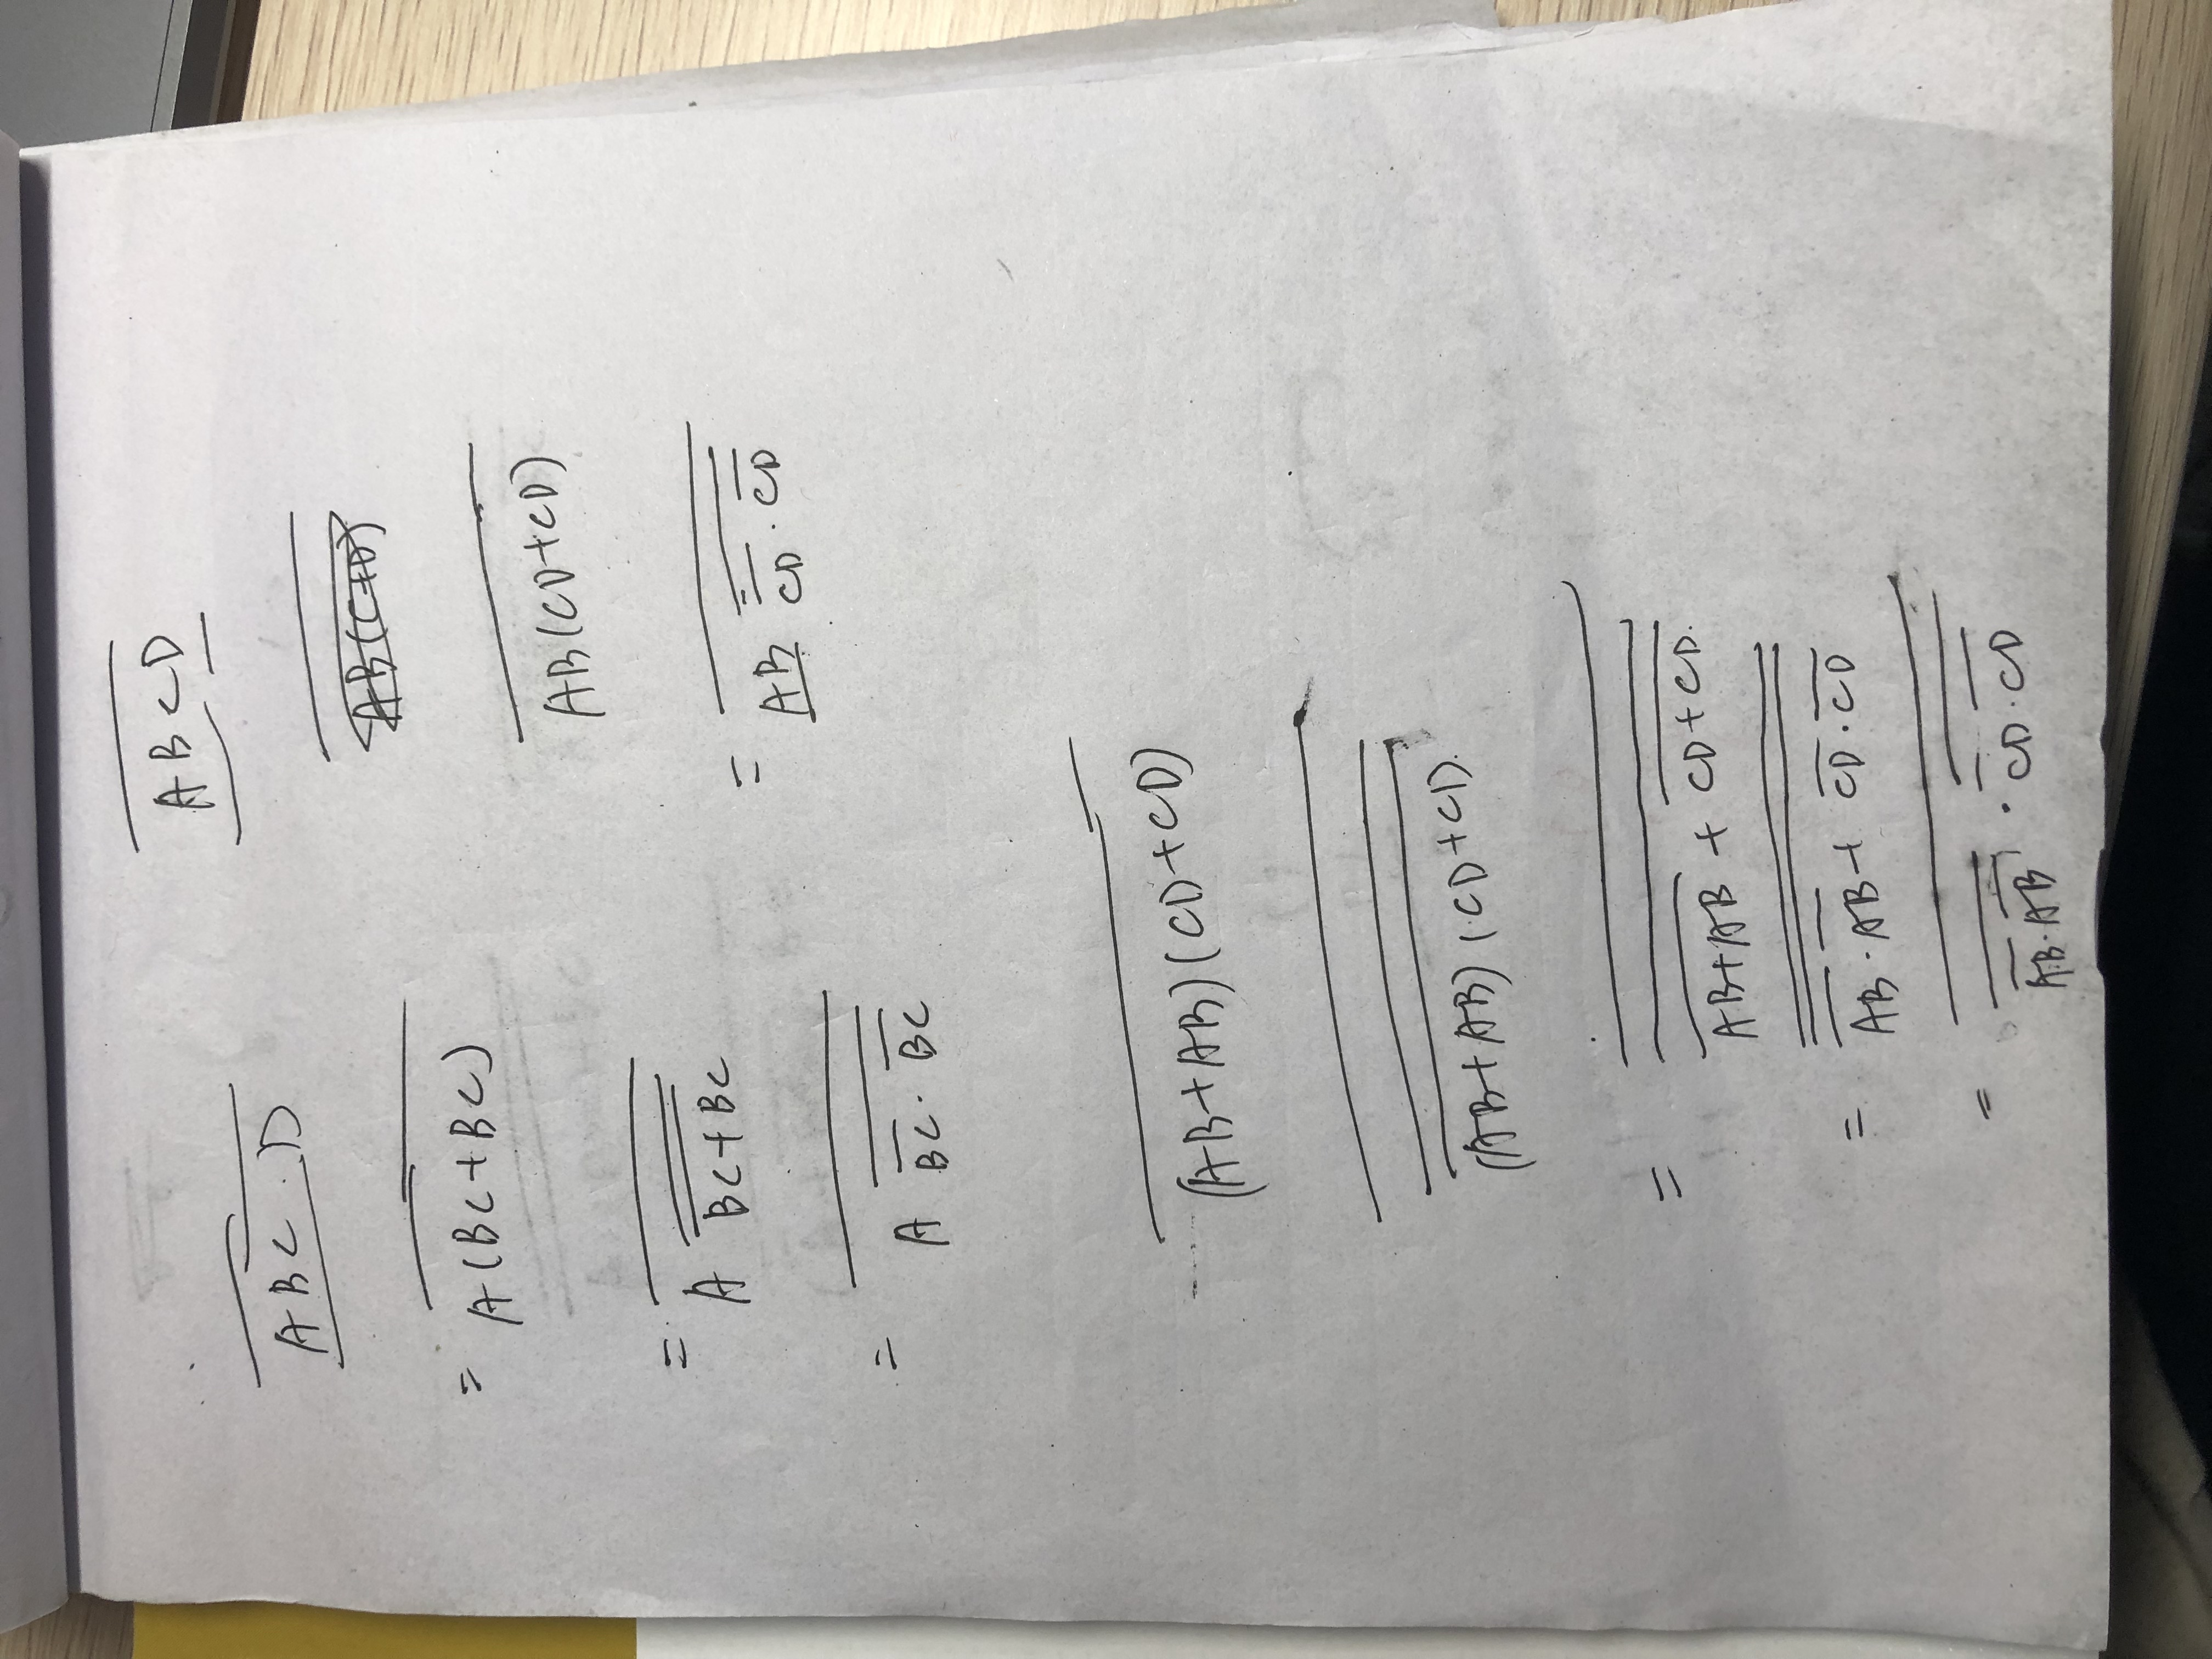 ABC·D
= A(BC+BC)
= A BC+BC
= A BC·BC
ABCD
AB(CD+CD)
= AB CD·CD
(AB+AB)(CD+CD)
(AB+AB)(CD+CD
= AB+AB + CD+CD.
= AB·AB+ CD·CD
= AB·AB · CD·CD